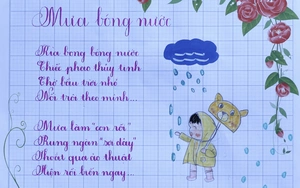 Mưa bóng nước
Mưa bong bóng nước
Thuở pháo thủy tinh
Thơ bâu trời nhỏ
Mỗi trời theo mình...
Mưa làm "con rối"
Rung ngàn "sợi dây"
Thoắt qua ảo thuật
Hiện ra bên ngay...